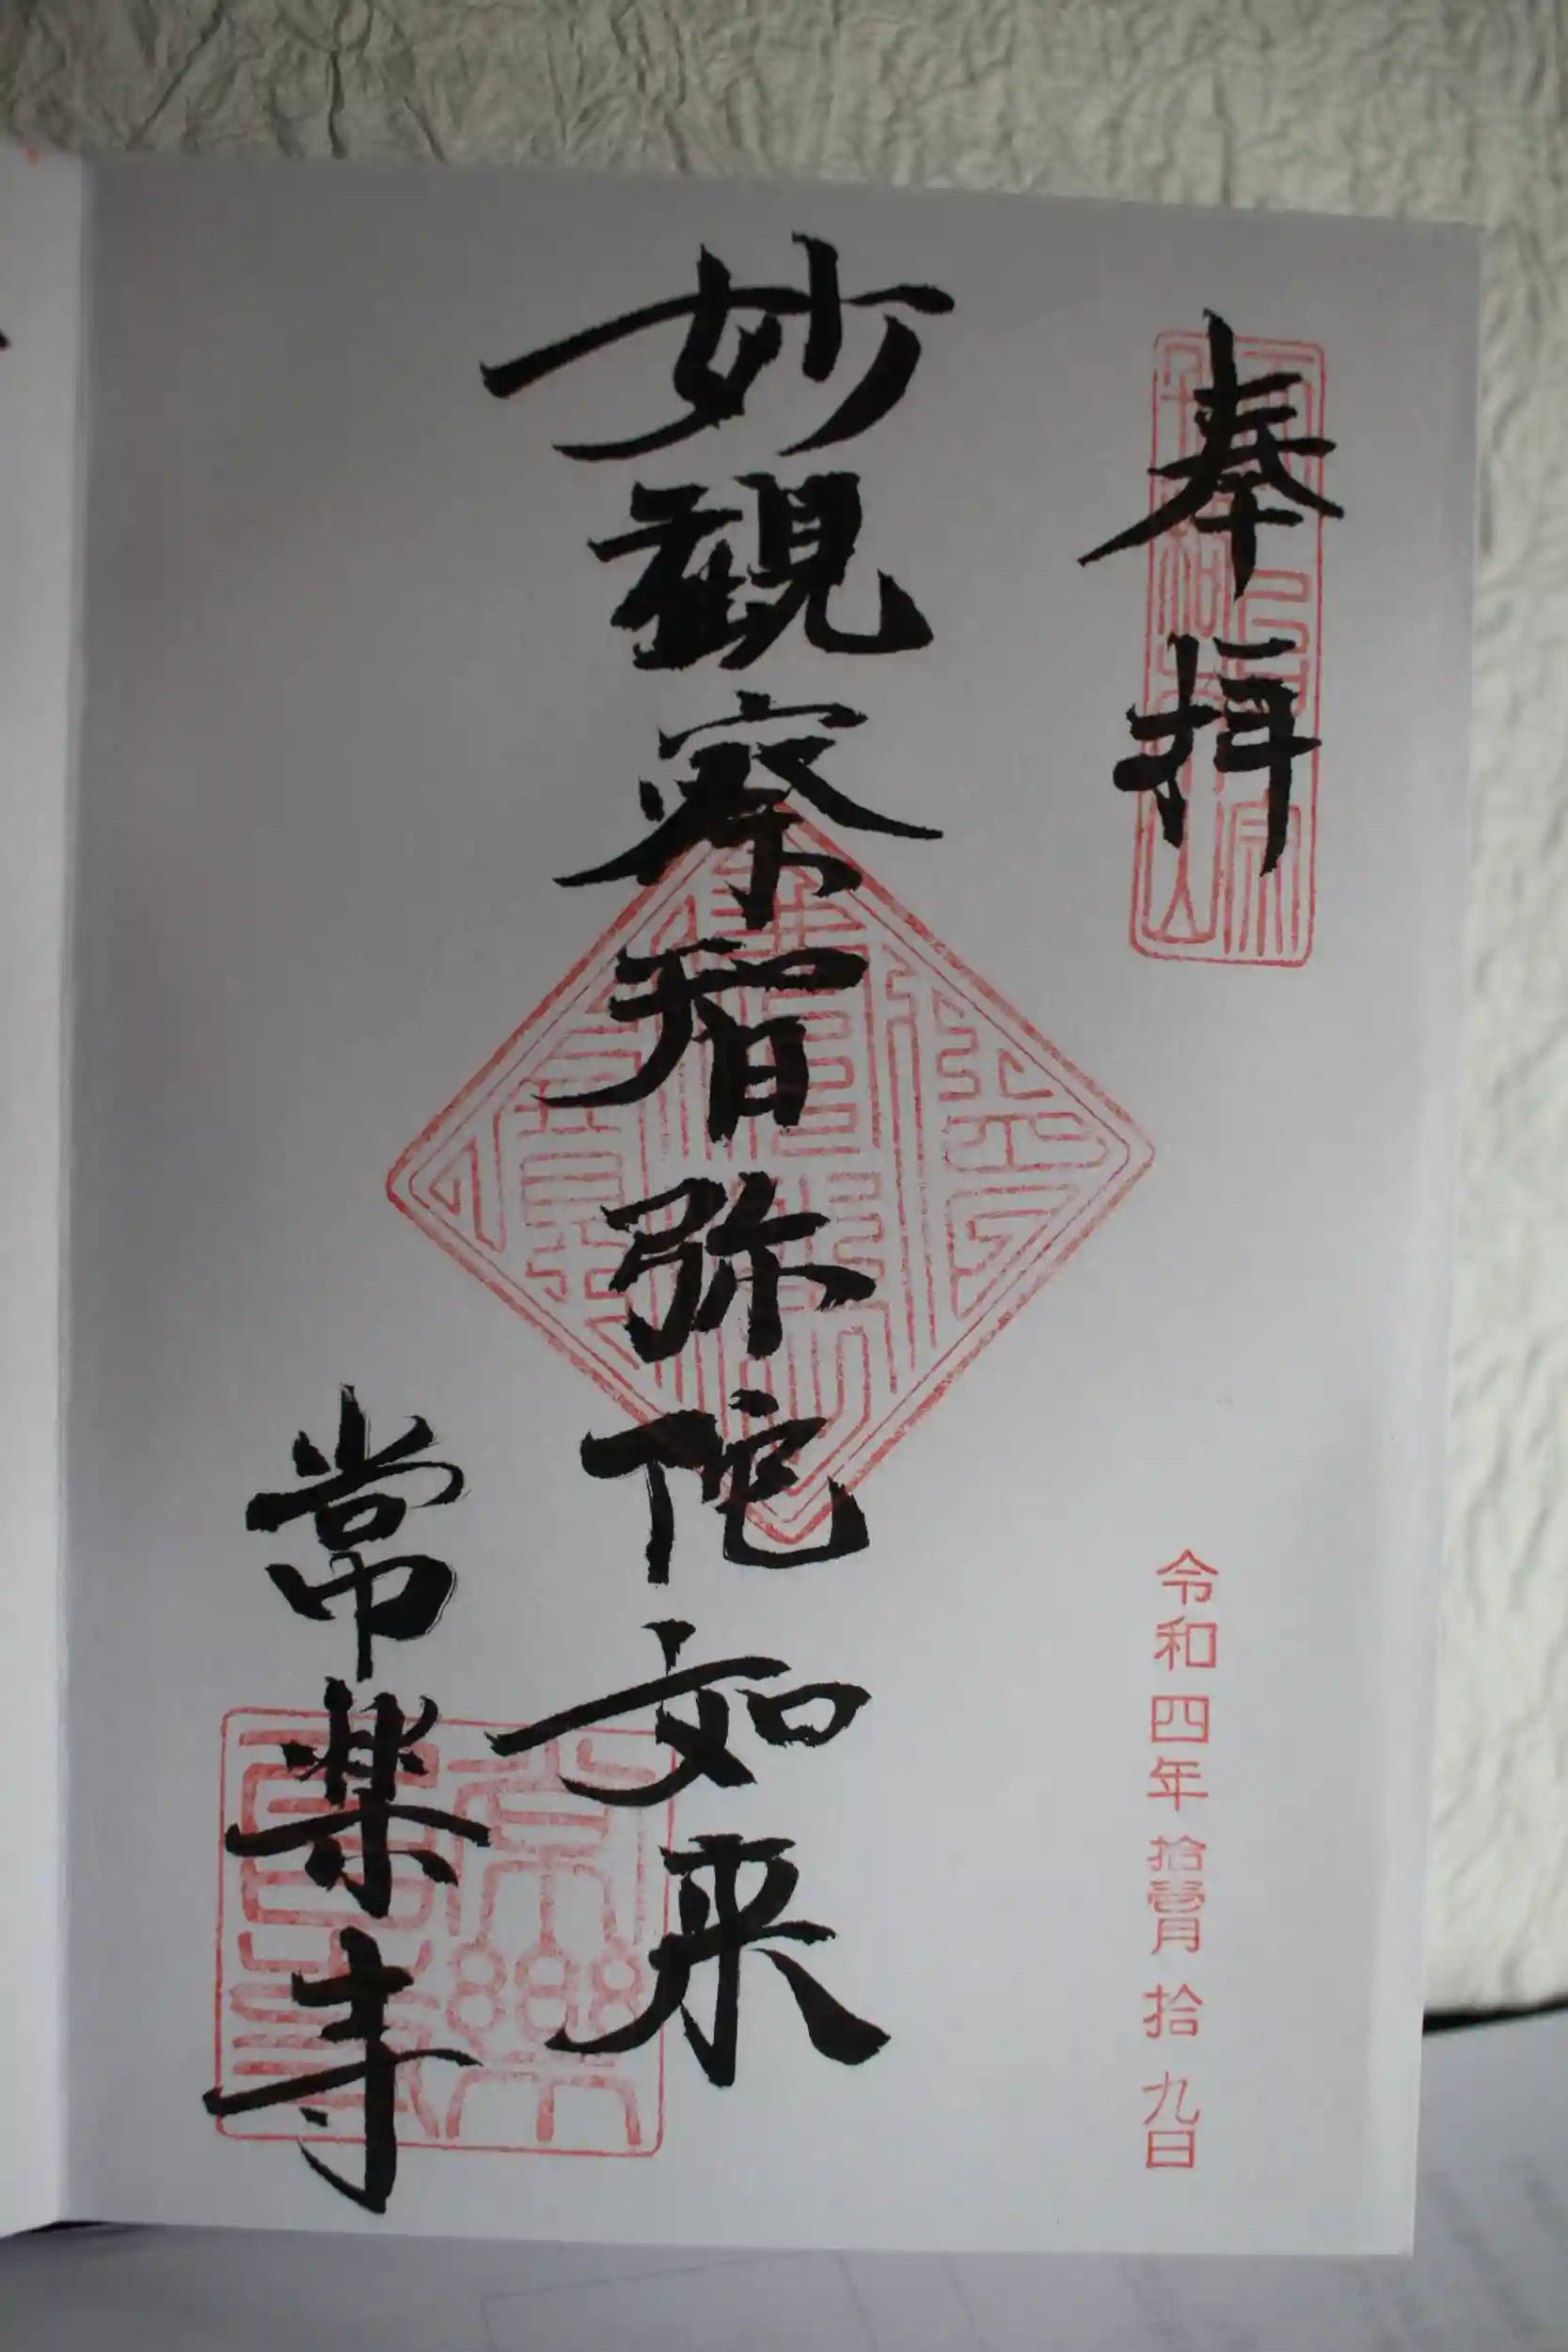 奉拝
令和四年拾壹月拾九日
妙観察智弥陀如来
常楽寺